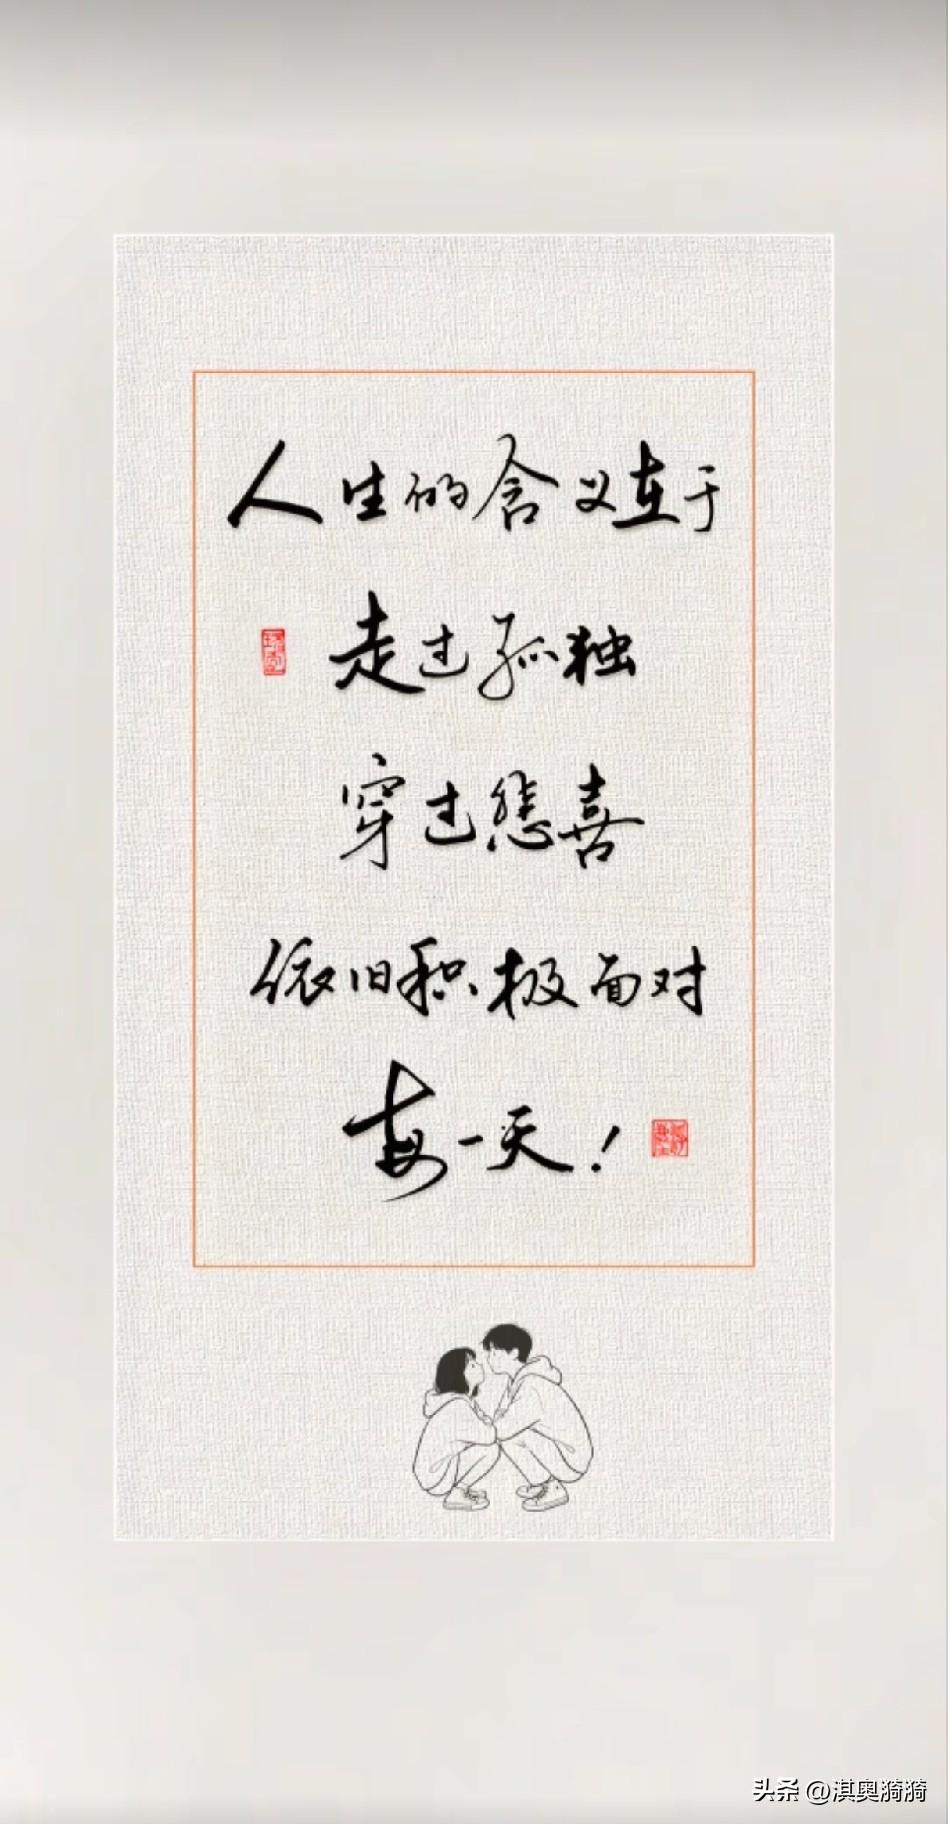 人生的含义在于
走过孤独
穿过悲喜
依旧积极面对
每一天!
头条 @淇奥漪漪